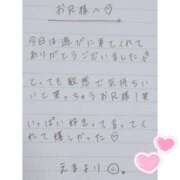 お兄様へ♡
今日は遊びに来てくれて
ありがとうございました
とっても敏感で気持ちいい
って笑っちゃうお兄様！笑
いっぱい好きって言ってく
れて嬉しかった♡
えまより☺